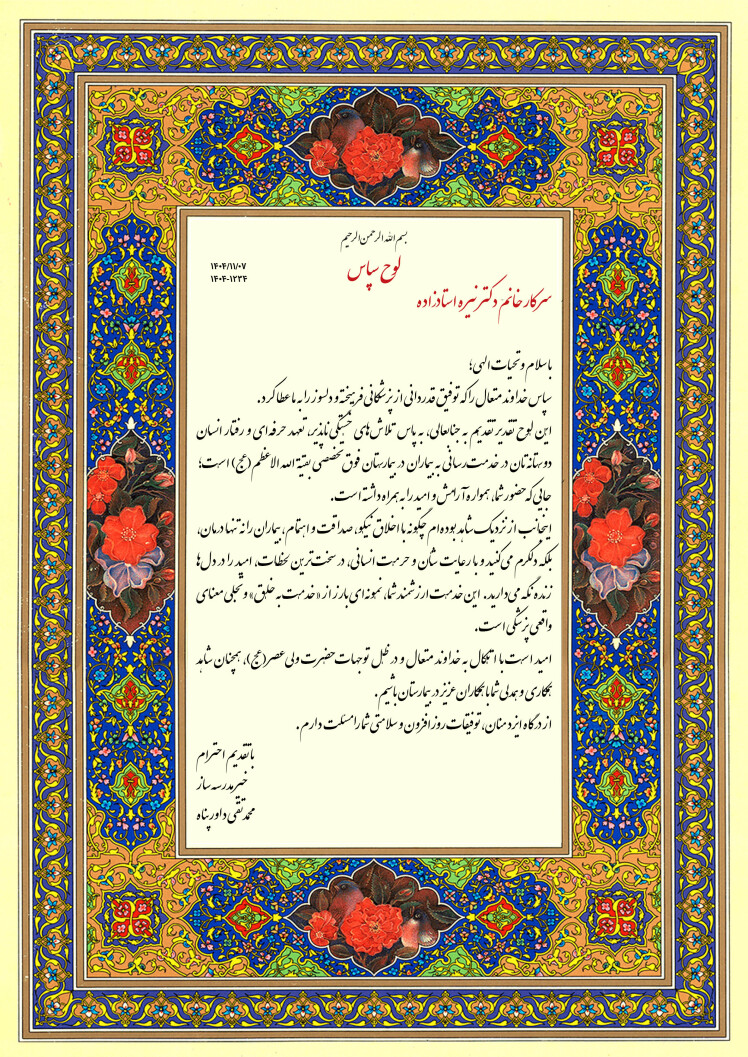 بسم الله الرحمن الرحیم
لوح سپاس
۱۴۰۴/۱۱/۰۷
۱۴۰۴-۱۲۳۴
سرکار خانم دکتر نیره استادزاده
با سلام و تحیات الهی؛
سپاس خداوند متعال را که توفیق قدردانی از پزشکانی فرهیخته و دلسوز را به ما عطا کرد.
این لوح تقدیر تقدیم به جنابعالی، به پاس تلاش‌های خستگی ناپذیر، تعهد حرفه‌ای و رفتار انسان
دوستانه‌تان در خدمت رسانی به بیماران در بیمارستان فوق تخصصی بقیة الله الاعظم (عج) است؛
جایی که حضور شما، همواره آرامش و امید را به همراه داشته است.
اینجانب از نزدیک شاهد بوده‌ام چگونه با اخلاق نیکو، صداقت و اهتمام، بیماران را نه تنها درمان،
بلکه دلگرم می‌کنید و با رعایت شأن و حرمت انسانی، در سخت‌ترین لحظات، امید را در دل‌ها
زنده نگه می‌دارید. این خدمت ارزشمند شما، نمونه‌ای بارز از «خدمت به خلق» و تجلی معنای
واقعی پزشکی است.
امید است با اتکال به خداوند متعال و در ظل توجهات حضرت ولی عصر(عج)، همچنان شاهد
همکاری و همدلی شما با همکاران عزیز در بیمارستان باشیم.
از درگاه ایزد منان، توفیقات روز افزون و سلامتی شما را مسئلت دارم.
با تقدیم احترام
خیر مدرسه ساز
محمدتقی داورپناه